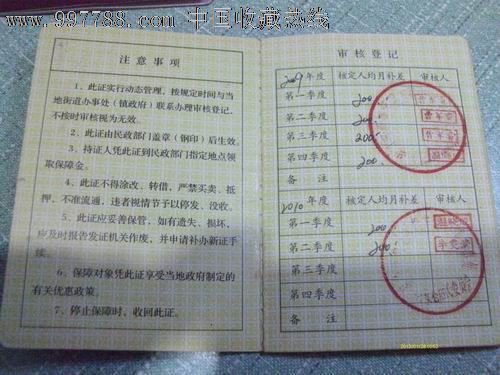 www.997788.com 中国收藏热线
注意事项
1、此证实行动态管理，按规定时间与当
地街道办事处（镇政府）联系办理审核登记，
不按时审核视为无效。
2、此证由民政部门盖章（钢印）后生效。
3、持证人凭此证到民政部门指定地点领
取保障金。
4、此证不得涂改、转借，严禁买卖、抵
押，不准流通，违者视情节予以停发、没收。
5、此证应妥善保管，如有遗失、损坏，
应及时报告发证机关作废，并申请补办新证手
续。
6、保障对象凭此证享受当地政府制定的
有关优惠政策。
7、停止保障时，收回此证。
审核登记
2009年度 核定人均月补差 审核人
第一季度 200
第二季度 200
第三季度 200
第四季度 200
备 注
2010年度 核定人均月补差 审核人
第一季度 200
第二季度 200
第三季度
第四季度
备 注